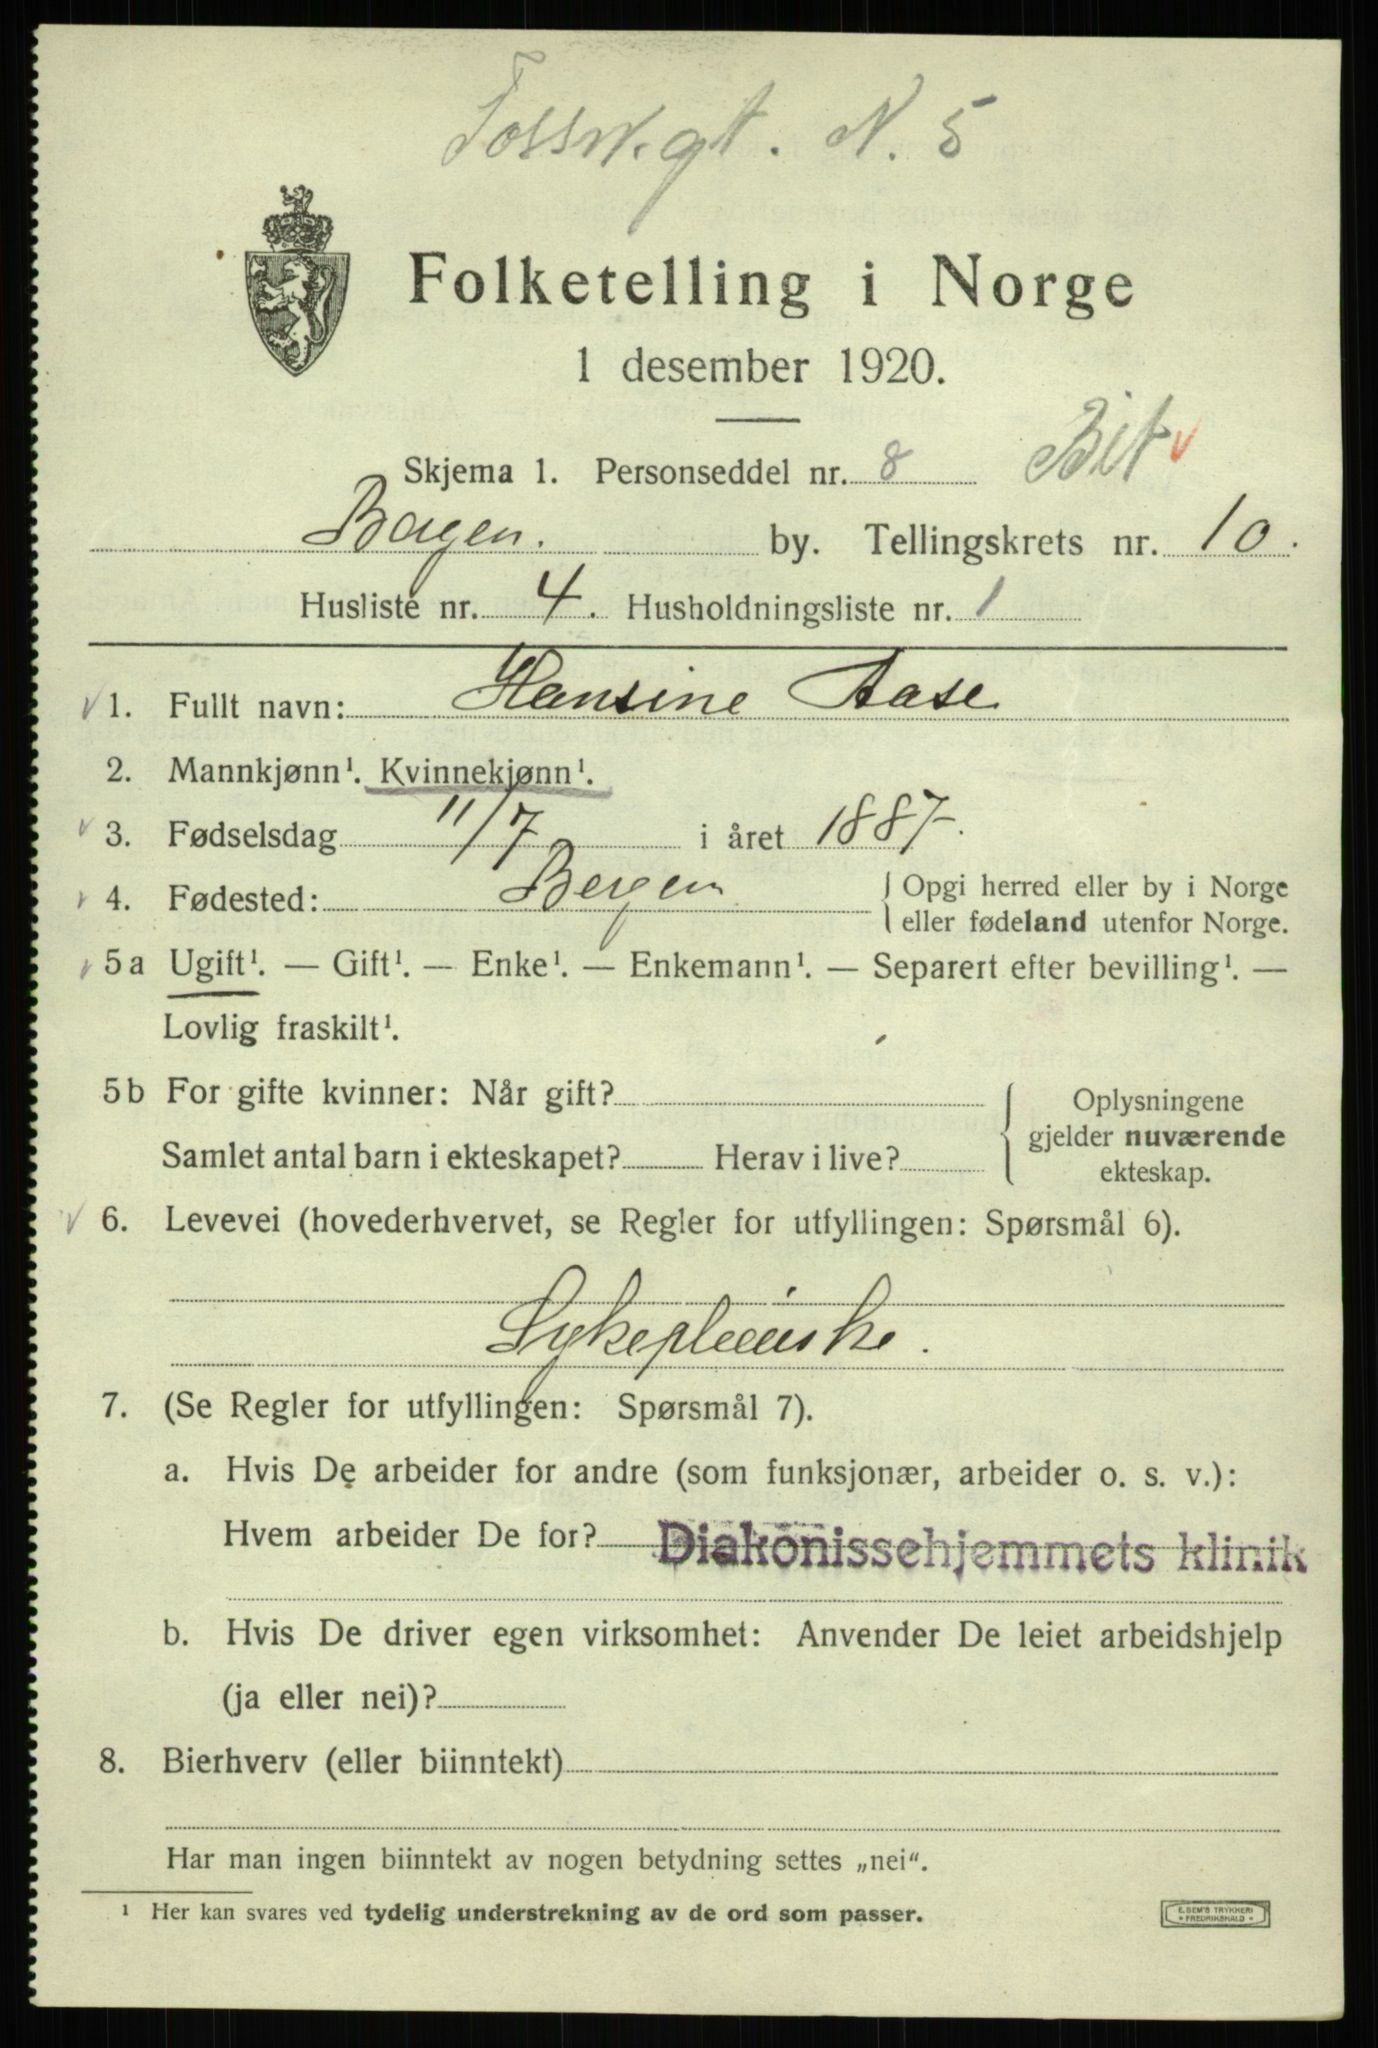 Fossw.gt. N. 5
Folketelling i Norge
1 desember 1920.
Skjema 1. Personseddel nr. 8 Bit v
Bergen. by. Tellingskrets nr. 10.
Husliste nr. 4. Husholdningsliste nr. 1
1. Fullt navn: Hansine Aase
2. Mannkjønn¹. Kvinnekjønn¹.
3. Fødselsdag 11/7 i året 1887.
4. Fødested: Bergen { Opgi herred eller by i Norge
eller fødeland utenfor Norge.
5a Ugift¹. — Gift¹. — Enke¹. — Enkemann¹. — Separert efter bevilling¹. —
Lovlig fraskilt¹.
5b For gifte kvinner: Når gift? { Oplysningene
gjelder nuværende
Samlet antal barn i ekteskapet? Herav i live? ekteskap.
6. Levevei (hovederhvervet, se Regler for utfyllingen: Spørsmål 6).
Sykepleierske.
7. (Se Regler for utfyllingen: Spørsmål 7).
a. Hvis De arbeider for andre (som funksjonær, arbeider o. s. v.):
Hvem arbeider De for? Diakonissehjemmets klinik
b. Hvis De driver egen virksomhet: Anvender De leiet arbeidshjelp
(ja eller nei)?
8. Bierhverv (eller biinntekt)
Har man ingen biinntekt av nogen betydning settes „nei“.
¹ Her kan svares ved tydelig understrekning av de ord som passer.
E. SEM'S TRYKKERI
* FREDRIKSHALD *